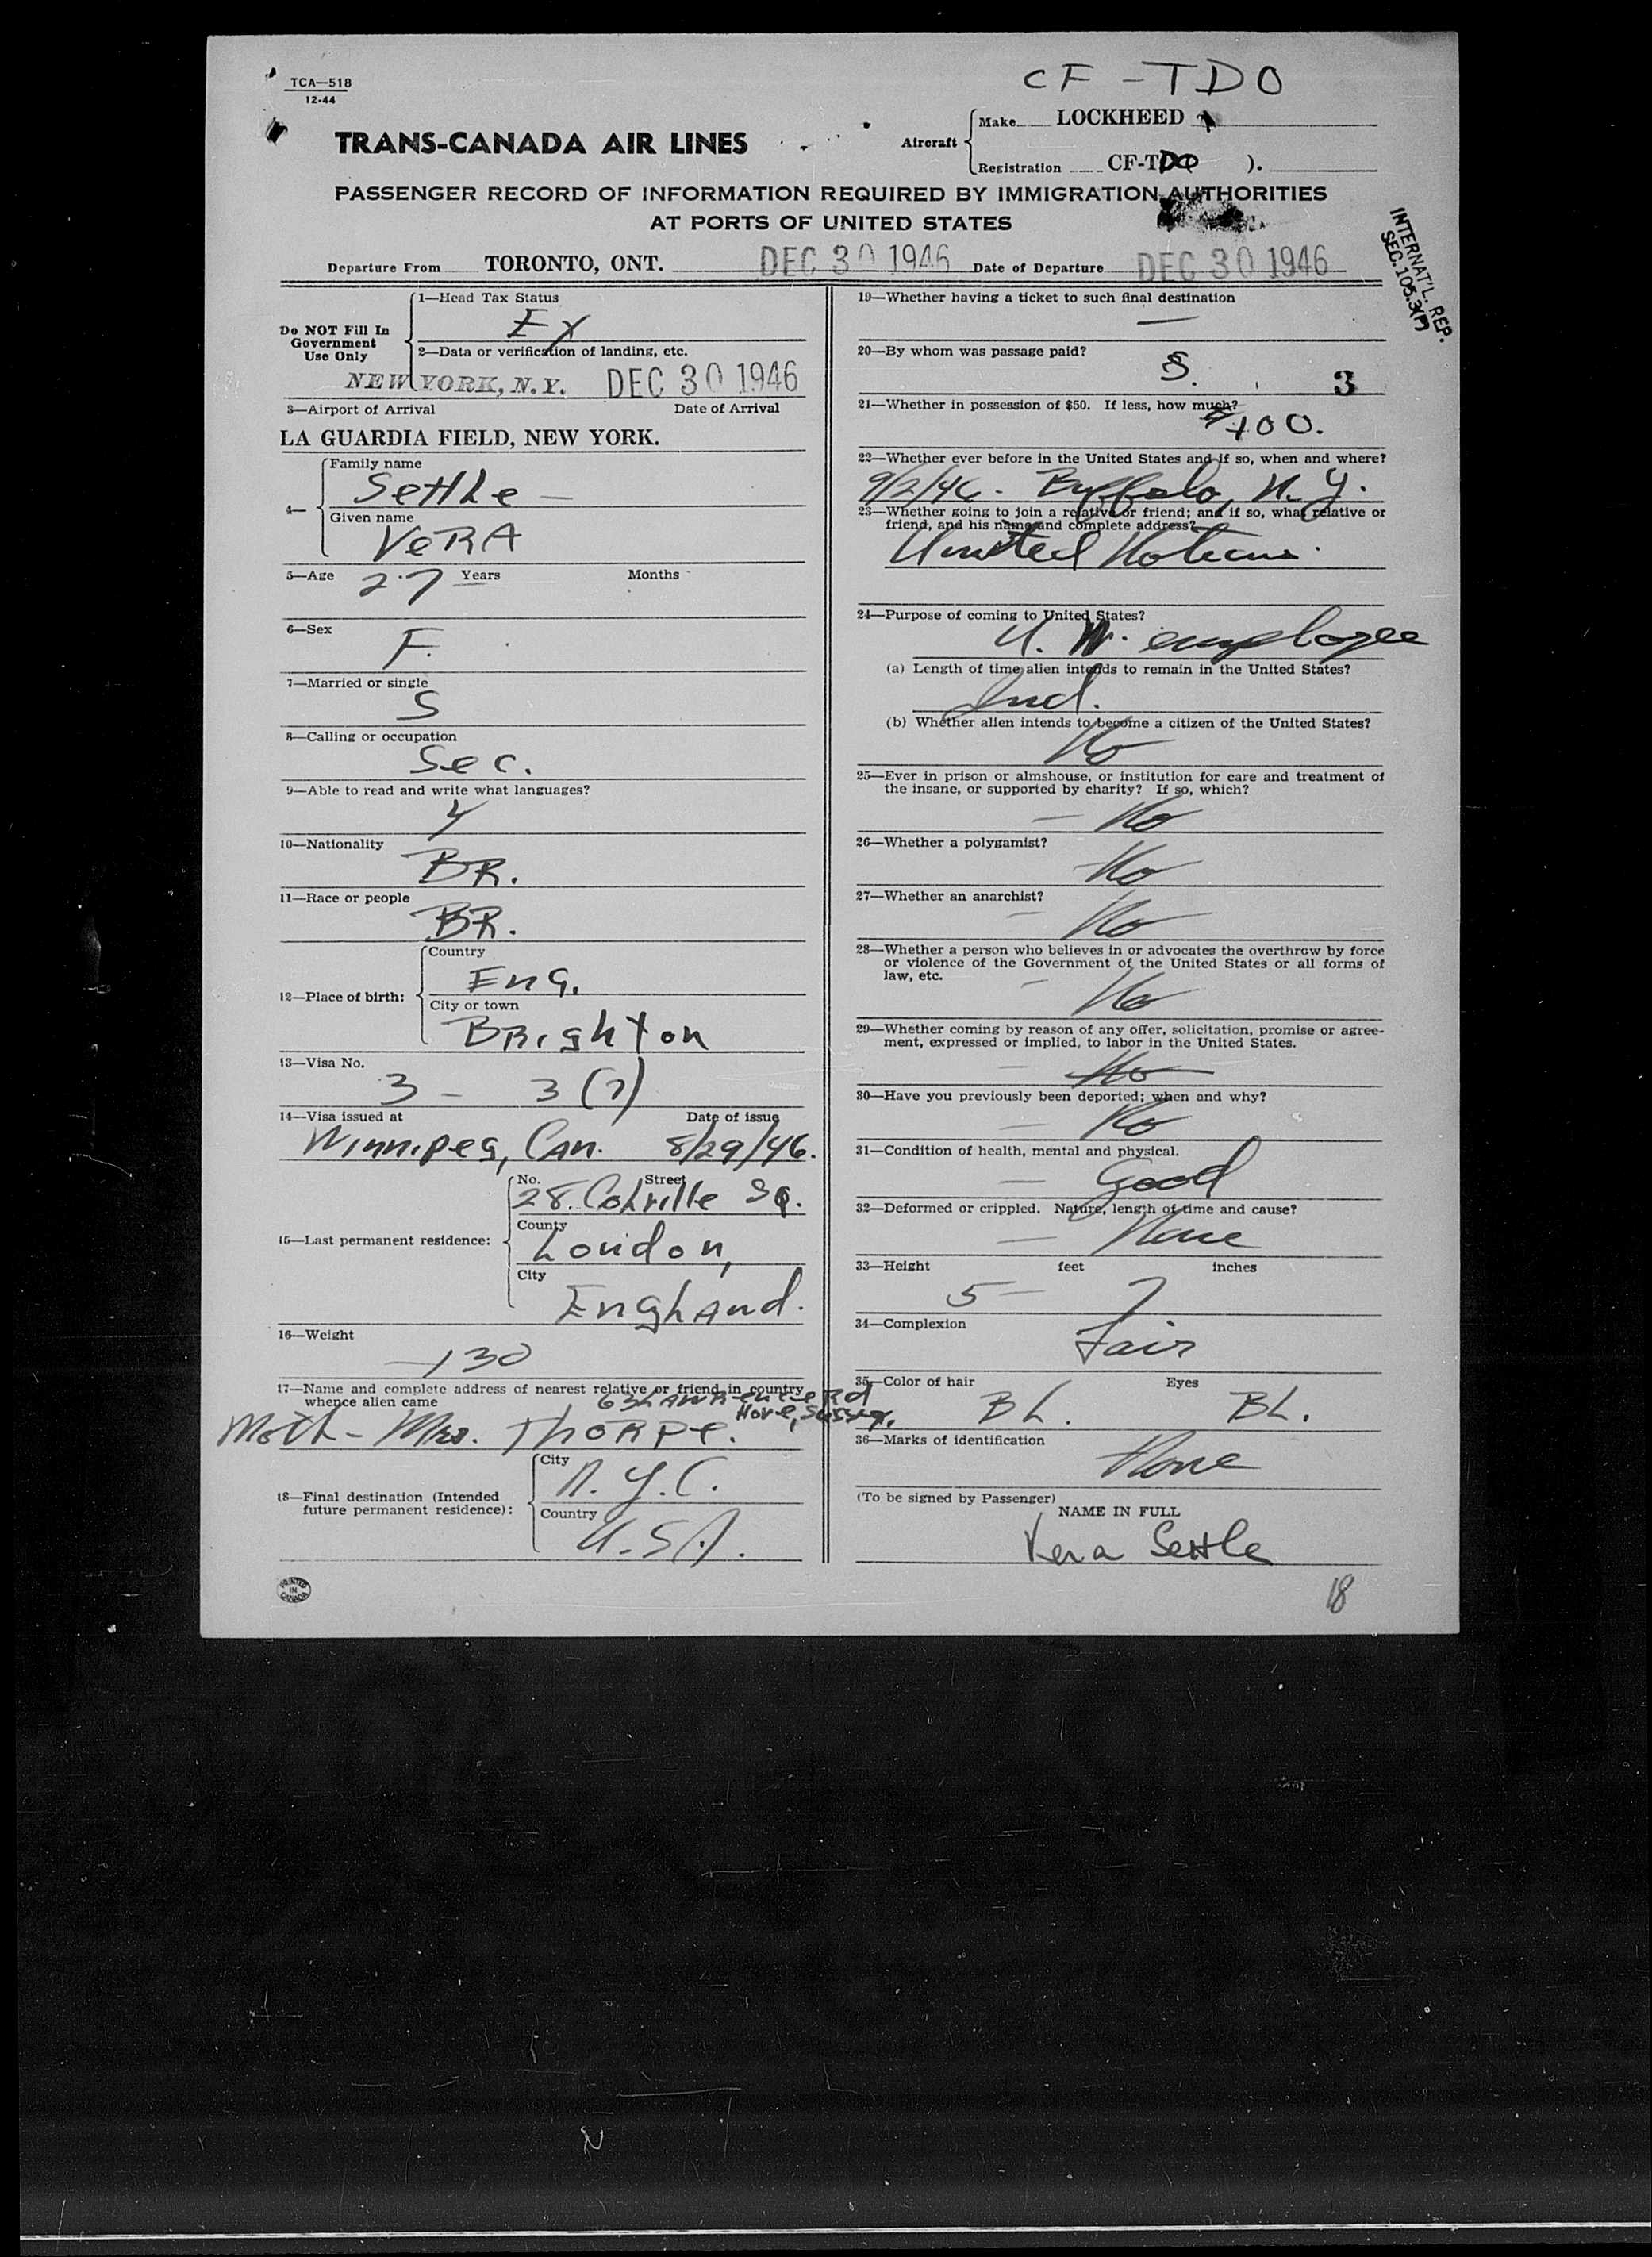 TCA—518
12-44
CF-TDO
TRANS-CANADA AIR LINES
Aircraft
Make LOCKHEED
Registration CF-TDO ).
PASSENGER RECORD OF INFORMATION REQUIRED BY IMMIGRATION AUTHORITIES
AT PORTS OF UNITED STATES
INTERNAT'L. REP.
SEC. 105.3(P)
Departure From TORONTO, ONT. DEC 30 1946 Date of Departure DEC 30 1946
Do NOT Fill In
Government
Use Only
1—Head Tax Status
Ex
2—Data or verification of landing, etc.
NEW YORK, N.Y. DEC 30 1946
3—Airport of Arrival Date of Arrival
LA GUARDIA FIELD, NEW YORK.
4—
Family name
Settle
Given name
VeRA
5—Age 27 Years Months
6—Sex
F.
7—Married or single
S
8—Calling or occupation
Sec.
9—Able to read and write what languages?
Y
10—Nationality
BR.
11—Race or people
BR.
12—Place of birth:
Country
Eng.
City or town
Brighton
13—Visa No.
3 - 3(7)
14—Visa issued at Date of issue
Winnipeg, Can. 8/29/46.
15—Last permanent residence:
No. Street
28. Colville Sq.
County
London,
City
England.
16—Weight
130
17—Name and complete address of nearest relative or friend in country
whence alien came
63 Lawrence Rd
Hove, Sussex.
Moth - Mrs. Thorpe.
18—Final destination (Intended
future permanent residence):
City
N.Y.C.
Country
U.S.A.
PRINTED
IN
CANADA
19—Whether having a ticket to such final destination
—
20—By whom was passage paid?
S. 3
21—Whether in possession of $50. If less, how much?
$100.
22—Whether ever before in the United States and if so, when and where?
9/2/46. Buffalo, N.Y.
23—Whether going to join a relative or friend; and if so, what relative or
friend, and his name and complete address?
United Nations.
24—Purpose of coming to United States?
U.N. employee
(a) Length of time alien intends to remain in the United States?
Ind.
(b) Whether alien intends to become a citizen of the United States?
No
25—Ever in prison or almshouse, or institution for care and treatment of
the insane, or supported by charity? If so, which?
— No
26—Whether a polygamist?
No
27—Whether an anarchist?
— No
28—Whether a person who believes in or advocates the overthrow by force
or violence of the Government of the United States or all forms of
law, etc.
— No
29—Whether coming by reason of any offer, solicitation, promise or agree-
ment, expressed or implied, to labor in the United States.
— No
30—Have you previously been deported; when and why?
— No
31—Condition of health, mental and physical.
— Good
32—Deformed or crippled. Nature, length of time and cause?
— None
33—Height feet inches
5 — 7
34—Complexion
Fair
35—Color of hair Eyes
BL. BL.
36—Marks of identification
None
(To be signed by Passenger)
NAME IN FULL
Vera Settle
18